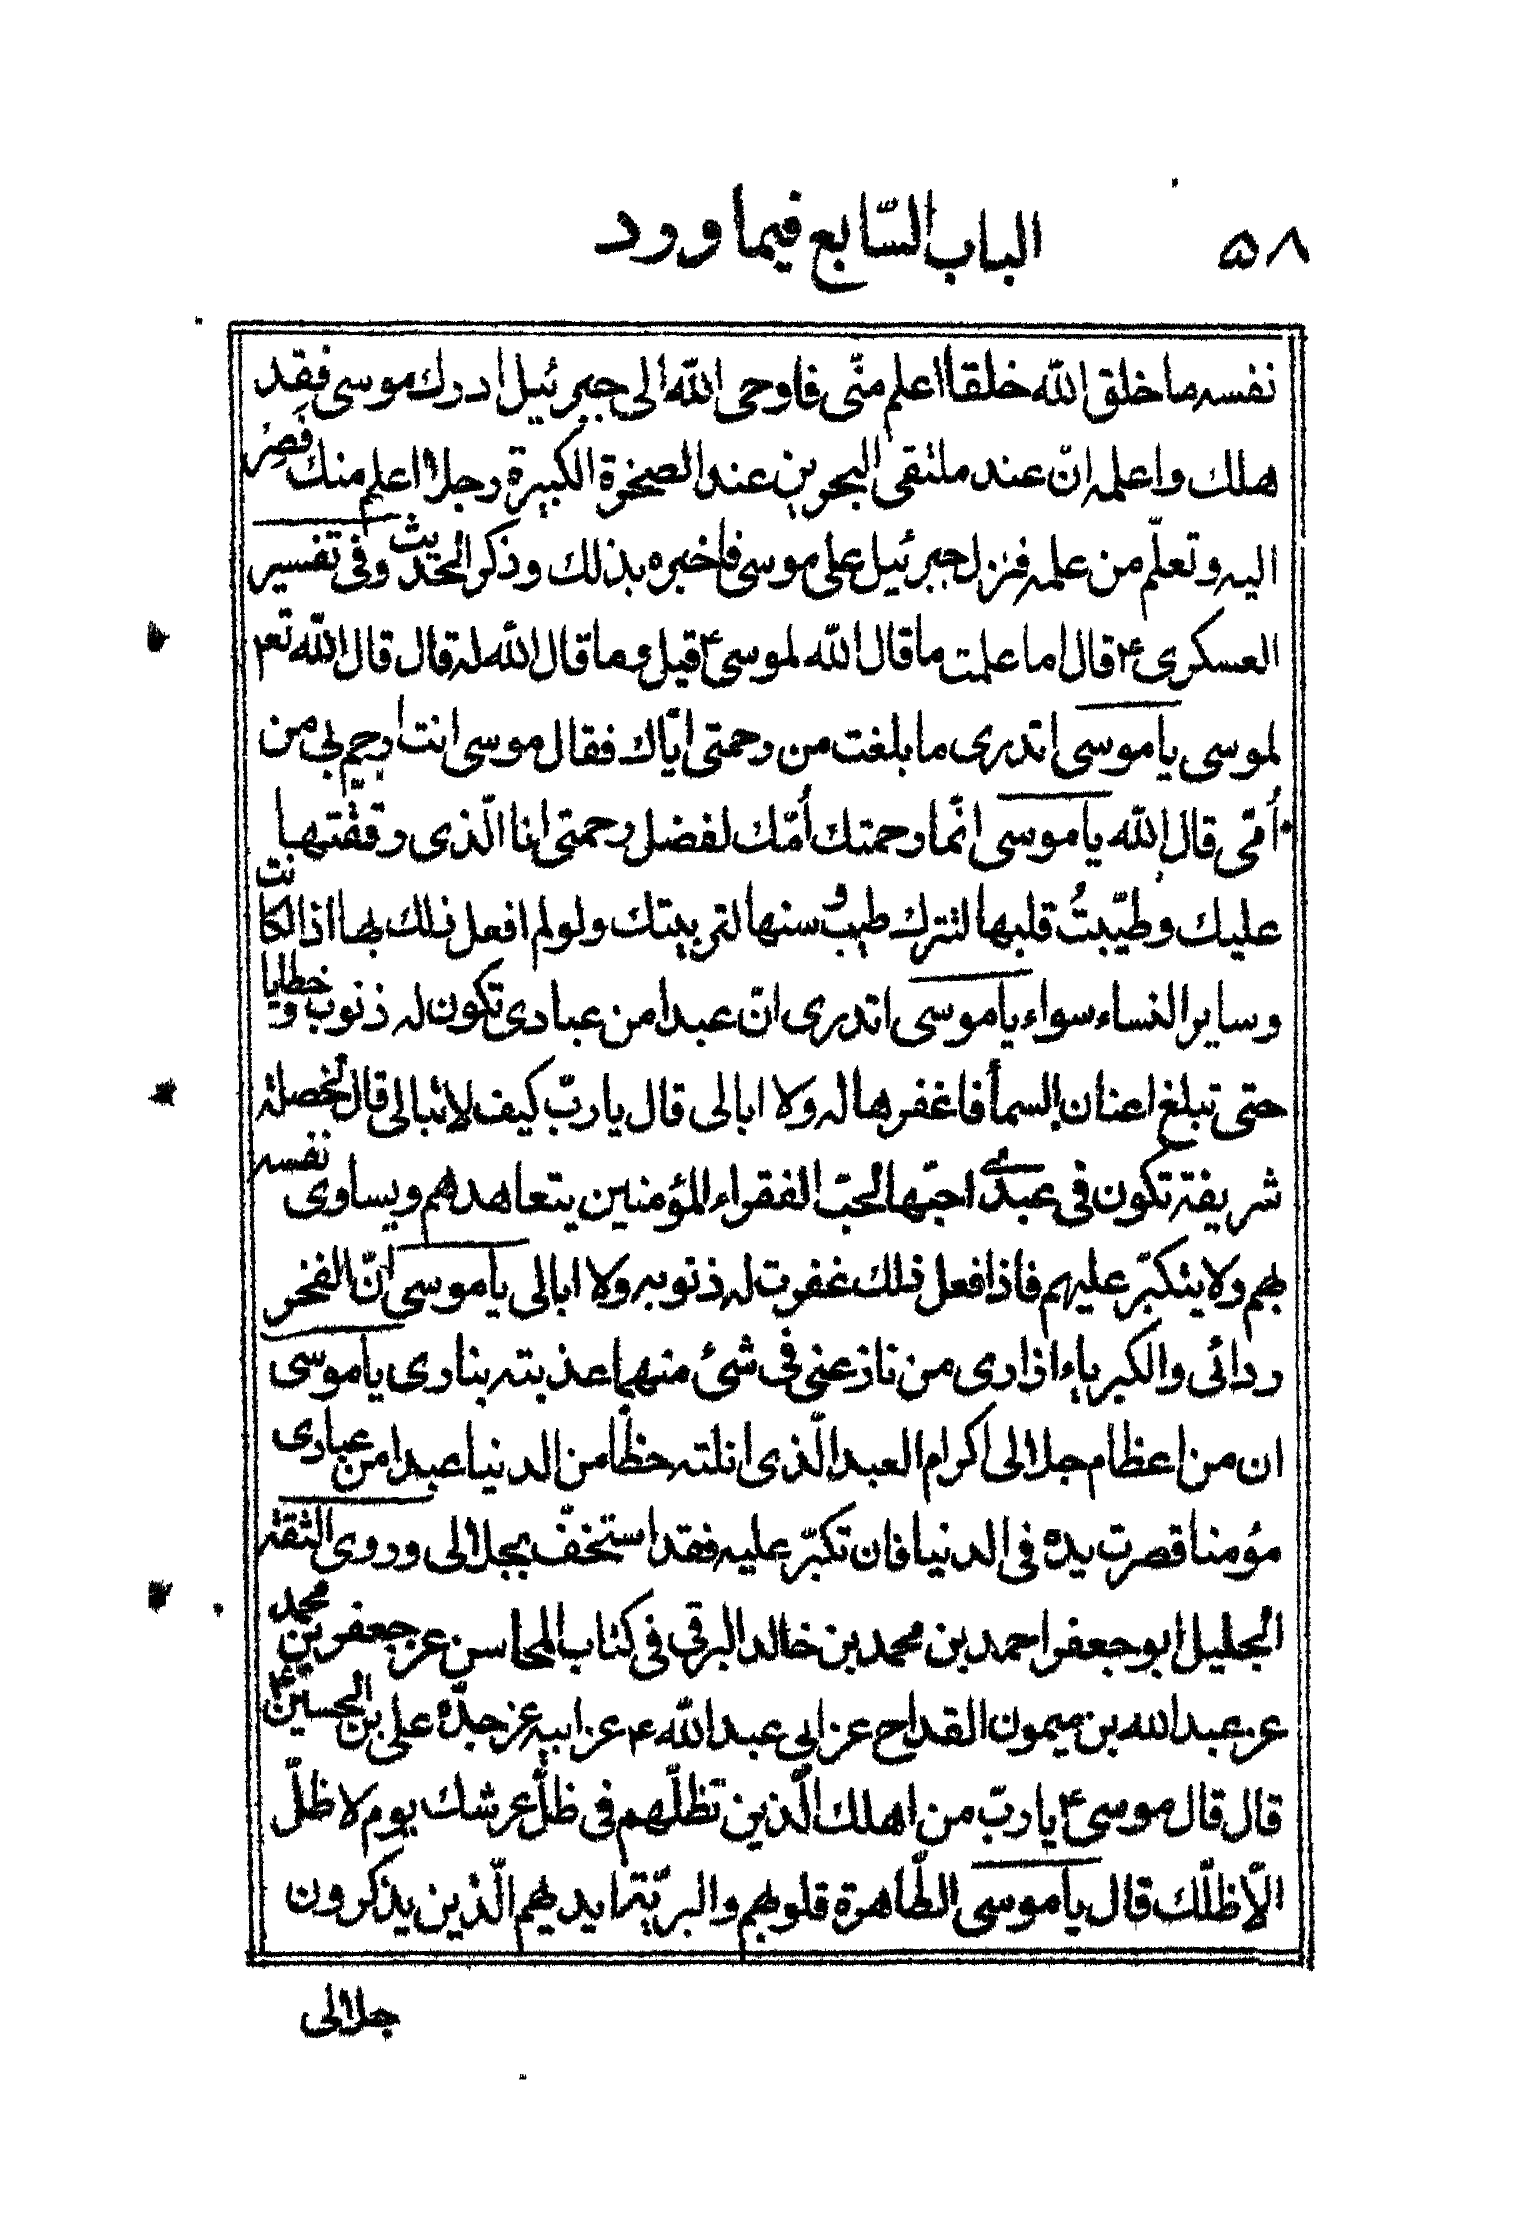 ٥٨
الباب السّابع فيما ورد
نفسه ما خلق الله خلقا اعلم منّى فاوحى الله الى جبرئيل ادرك موسى فقد
هلك واعلمه انّ عند ملتقى البحرين عند الصخرة الكبيرة رجلا اعلم منك فَصِرْ
اليه وتعلّم من علمه فنزل جبرئيل على موسى فاخبره بذلك وذكر الحديث وفى تفسير
العسكرى ع قال اما علمت ما قال الله لموسى ع قيل وما قال الله له قال قال الله تع
لموسى يا موسى اتدرى ما بلغت من رحمتى ايّاك فقال موسى انت ارحم بى من
أمّى قال الله يا موسى انّما رحمتك أمّك لفضل رحمتى انا الّذى رققّتها
عليك وطيّبتُ قلبها لتترك طيب وسنها لتربيتك ولو لم افعل ذلك بها اذا لكانت
وساير النساء سواء يا موسى اتدرى انّ عبدا من عبادى تكون له ذنوب وخطايا
حتى تبلغ اعنان السمآ فاغفرها له ولا ابالى قال يا ربّ كيف لا تبالى قال لخصلة
شريفة تكون فى عبدى احبّها الحبّ الفقراء المؤمنين يتعاهدهم ويساوى نفسه
بهم ولا يتكبّر عليهم فاذا فعل ذلك غفرت له ذنوبه ولا ابالى يا موسى انّ الفخر
ردائى والكبرياء ازارى من نازعنى فى شئ منهما عذبته بنارى يا موسى
ان من اعظام جلالى اكرام العبد الّذى انلته حظّا من الدنيا عبدا من عبادى
مؤمنا قصرت يده فى الدنيا فان تكبّر عليه فقد استخفّ بجلالى وروى الثقة
الجليل ابو جعفر احمد بن محمد بن خالد البرقى فى كتاب المحاسن عن جعفر بن محمد
عن عبد الله بن ميمون القداح عن ابى عبد الله ع عن ابيه عن جدّه على بن الحسين ع
قال قال موسى ع يا ربّ من اهلك الّذين تظلّهم فى ظلّ عرشك يوم لا ظلّ
الّا ظلّك قال يا موسى الطّاهرة قلوبهم والبريّة ايديهم الّذين يذكرون
جلالى